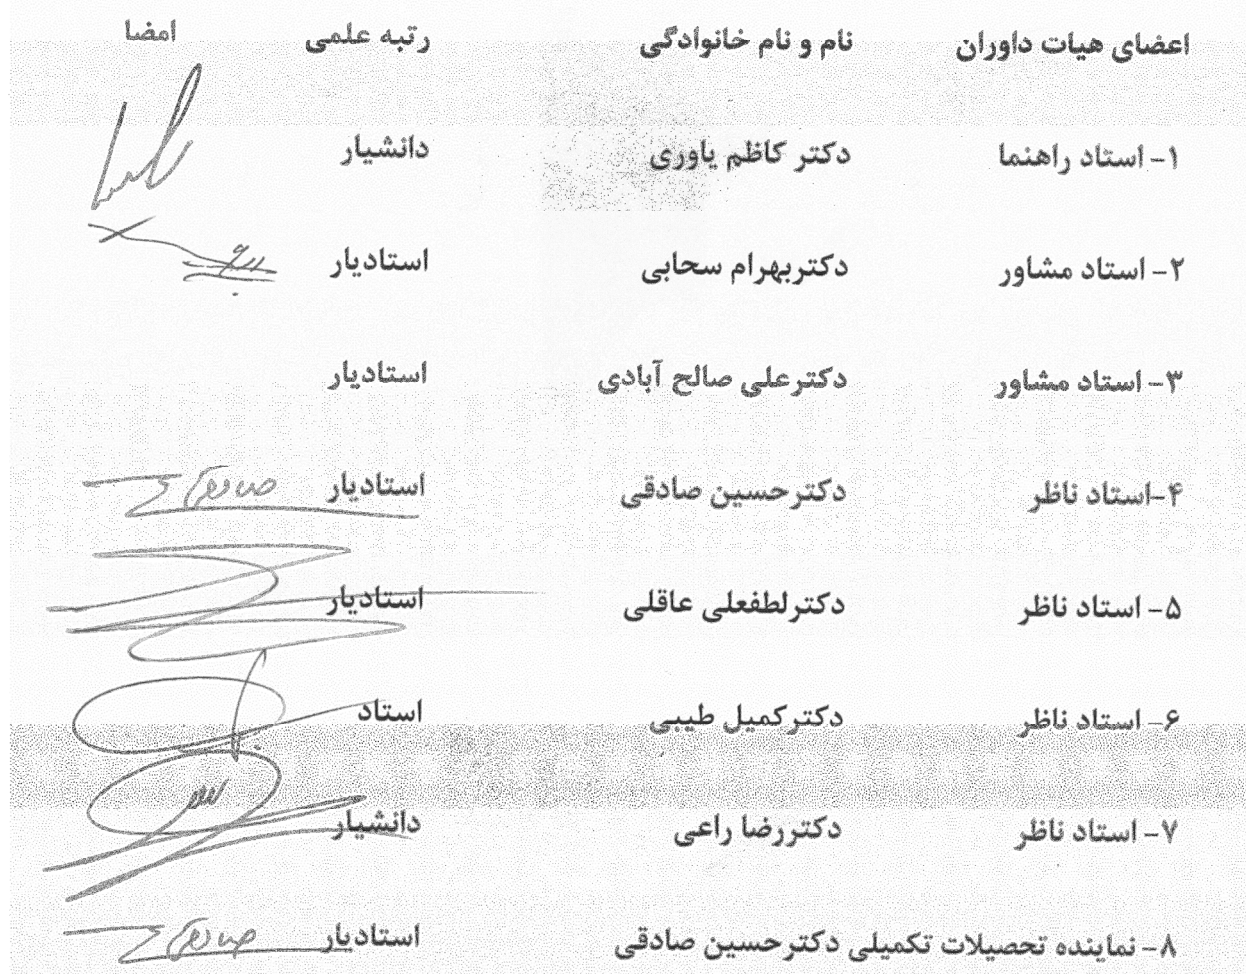 اعضای هیات داوران نام و نام خانوادگی رتبه علمی امضا
۱- استاد راهنما دکتر کاظم یاوری دانشیار
۲- استاد مشاور دکتربهرام سحابی استادیار
۳- استاد مشاور دکترعلی صالح آبادی استادیار
۴-استاد ناظر دکترحسین صادقی استادیار صادقی
۵- استاد ناظر دکترلطفعلی عاقلی استادیار
۶- استاد ناظر دکترکمیل طیبی استاد
۷- استاد ناظر دکتررضا راعی دانشیار
۸- نماینده تحصیلات تکمیلی دکترحسین صادقی استادیار صادقی